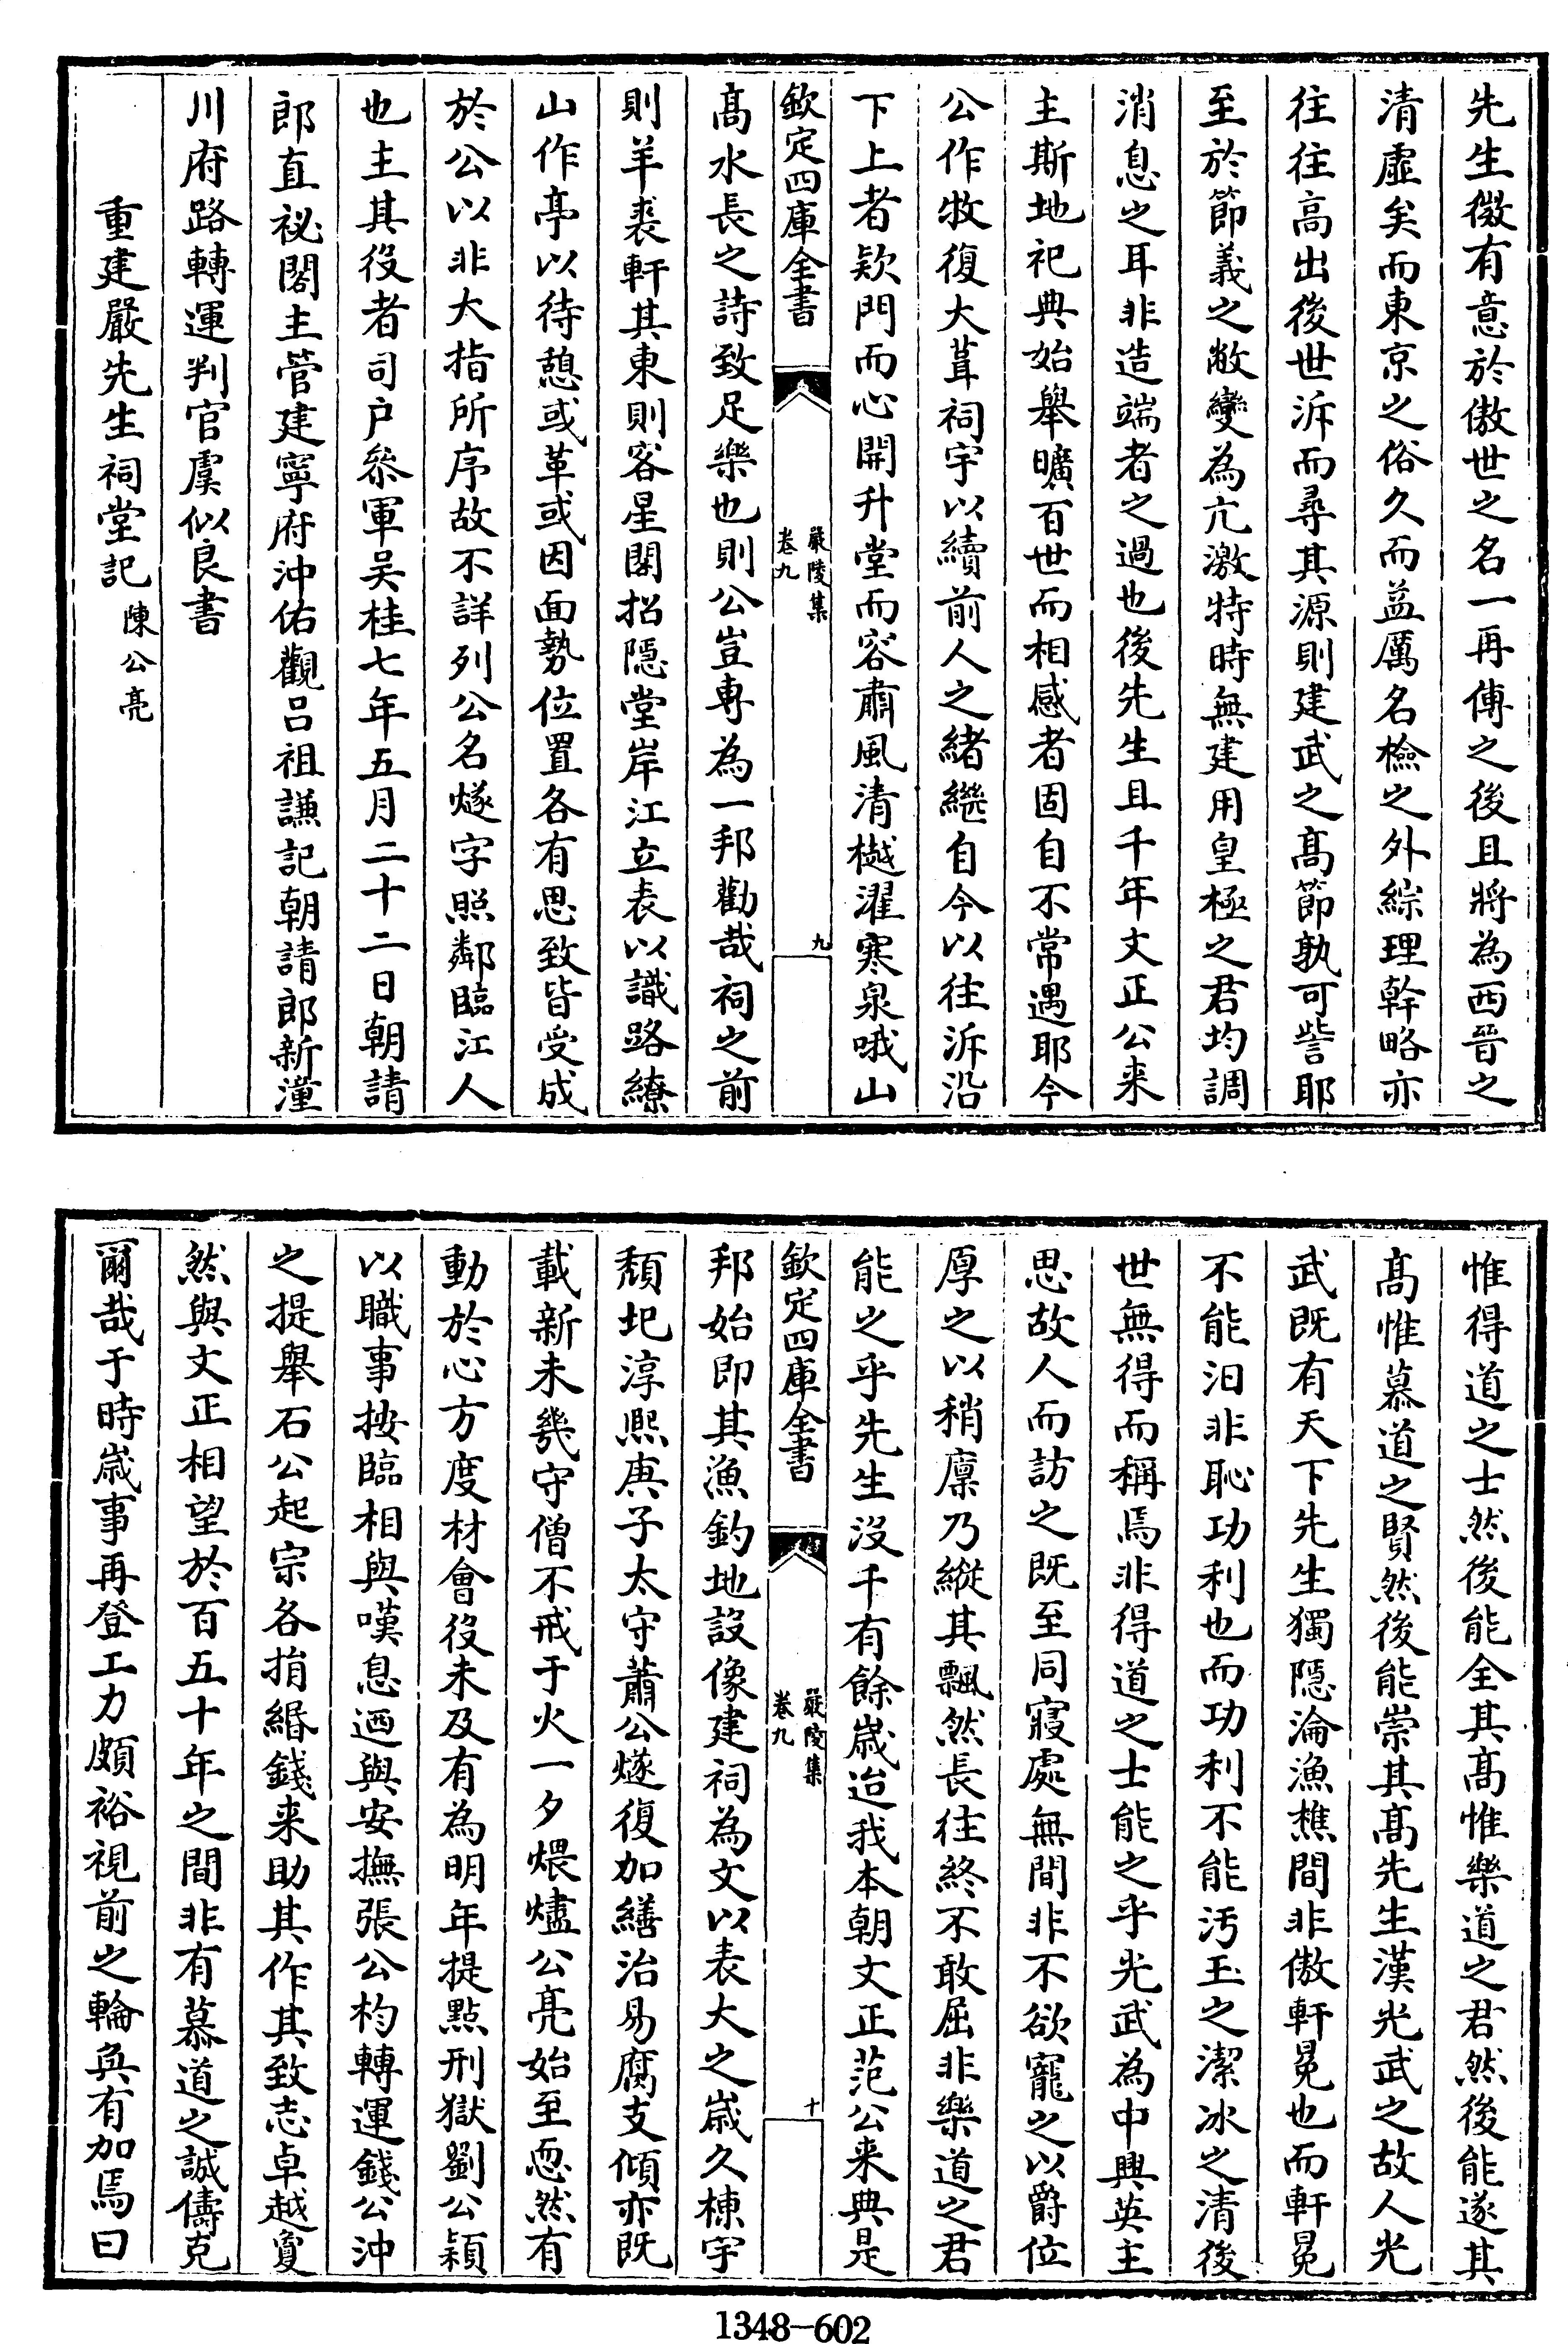 先生微有意於傲世之名一再傳之後且將為西晉之
清虛矣而東京之俗久而益厲名檢之外綜理幹略亦
往往高出後世泝而尋其源則建武之髙節孰可訾耶
至於節義之敝變為亢激特時無建用皇極之君均調
消息之耳非造端者之過也後先生且千年文正公来
主斯地祀典始舉曠百世而相感者固自不常遇耶今
公作牧復大葺祠宇以續前人之緒繼自今以往泝沿
下上者欵門而心開升堂而容肅風清樾濯寒泉哦山
欽定四庫全書
嚴陵集
卷九
九
髙水長之詩致足樂也則公豈專為一邦勸哉祠之前
則羊裘軒其東則客星閣招隠堂岸江立表以識路繚
山作亭以待憩或革或因面勢位置各有思致皆受成
於公以非大指所序故不詳列公名燧字照鄰臨江人
也主其役者司户叅軍吴桂七年五月二十二日朝請
郎直祕閣主管建寧府沖佑觀吕祖謙記朝請郎新潼
川府路轉運判官虞似良書
重建嚴先生祠堂記 陳公亮
惟得道之士然後能全其髙惟樂道之君然後能遂其
髙惟慕道之賢然後能崇其髙先生漢光武之故人光
武既有天下先生獨隠淪漁樵間非傲軒冕也而軒冕
不能汩非恥功利也而功利不能汚玉之潔冰之清後
世無得而稱焉非得道之士能之乎光武為中興英主
思故人而訪之既至同寢處無間非不欲寵之以爵位
厚之以稍廩乃縱其飄然長往終不敢屈非樂道之君
能之乎先生沒千有餘歲迨我本朝文正范公来典是
欽定四庫全書
嚴陵集
卷九
十
邦始即其漁釣地設像建祠為文以表大之歲久棟宇
頽圮淳熙庚子太守蕭公燧復加繕治易腐支傾亦既
載新未幾守僧不戒于火一夕煨燼公亮始至惄然有
動於心方度材會役未及有為明年提點刑獄劉公穎
以職事按臨相與嘆息迺與安撫張公杓轉運錢公沖
之提舉石公起宗各捐緡錢来助其作其致志卓越敻
然與文正相望於百五十年之間非有慕道之誠儔克
爾哉于時歲事再登工力頗裕視前之輪奐有加焉曰
1348-602